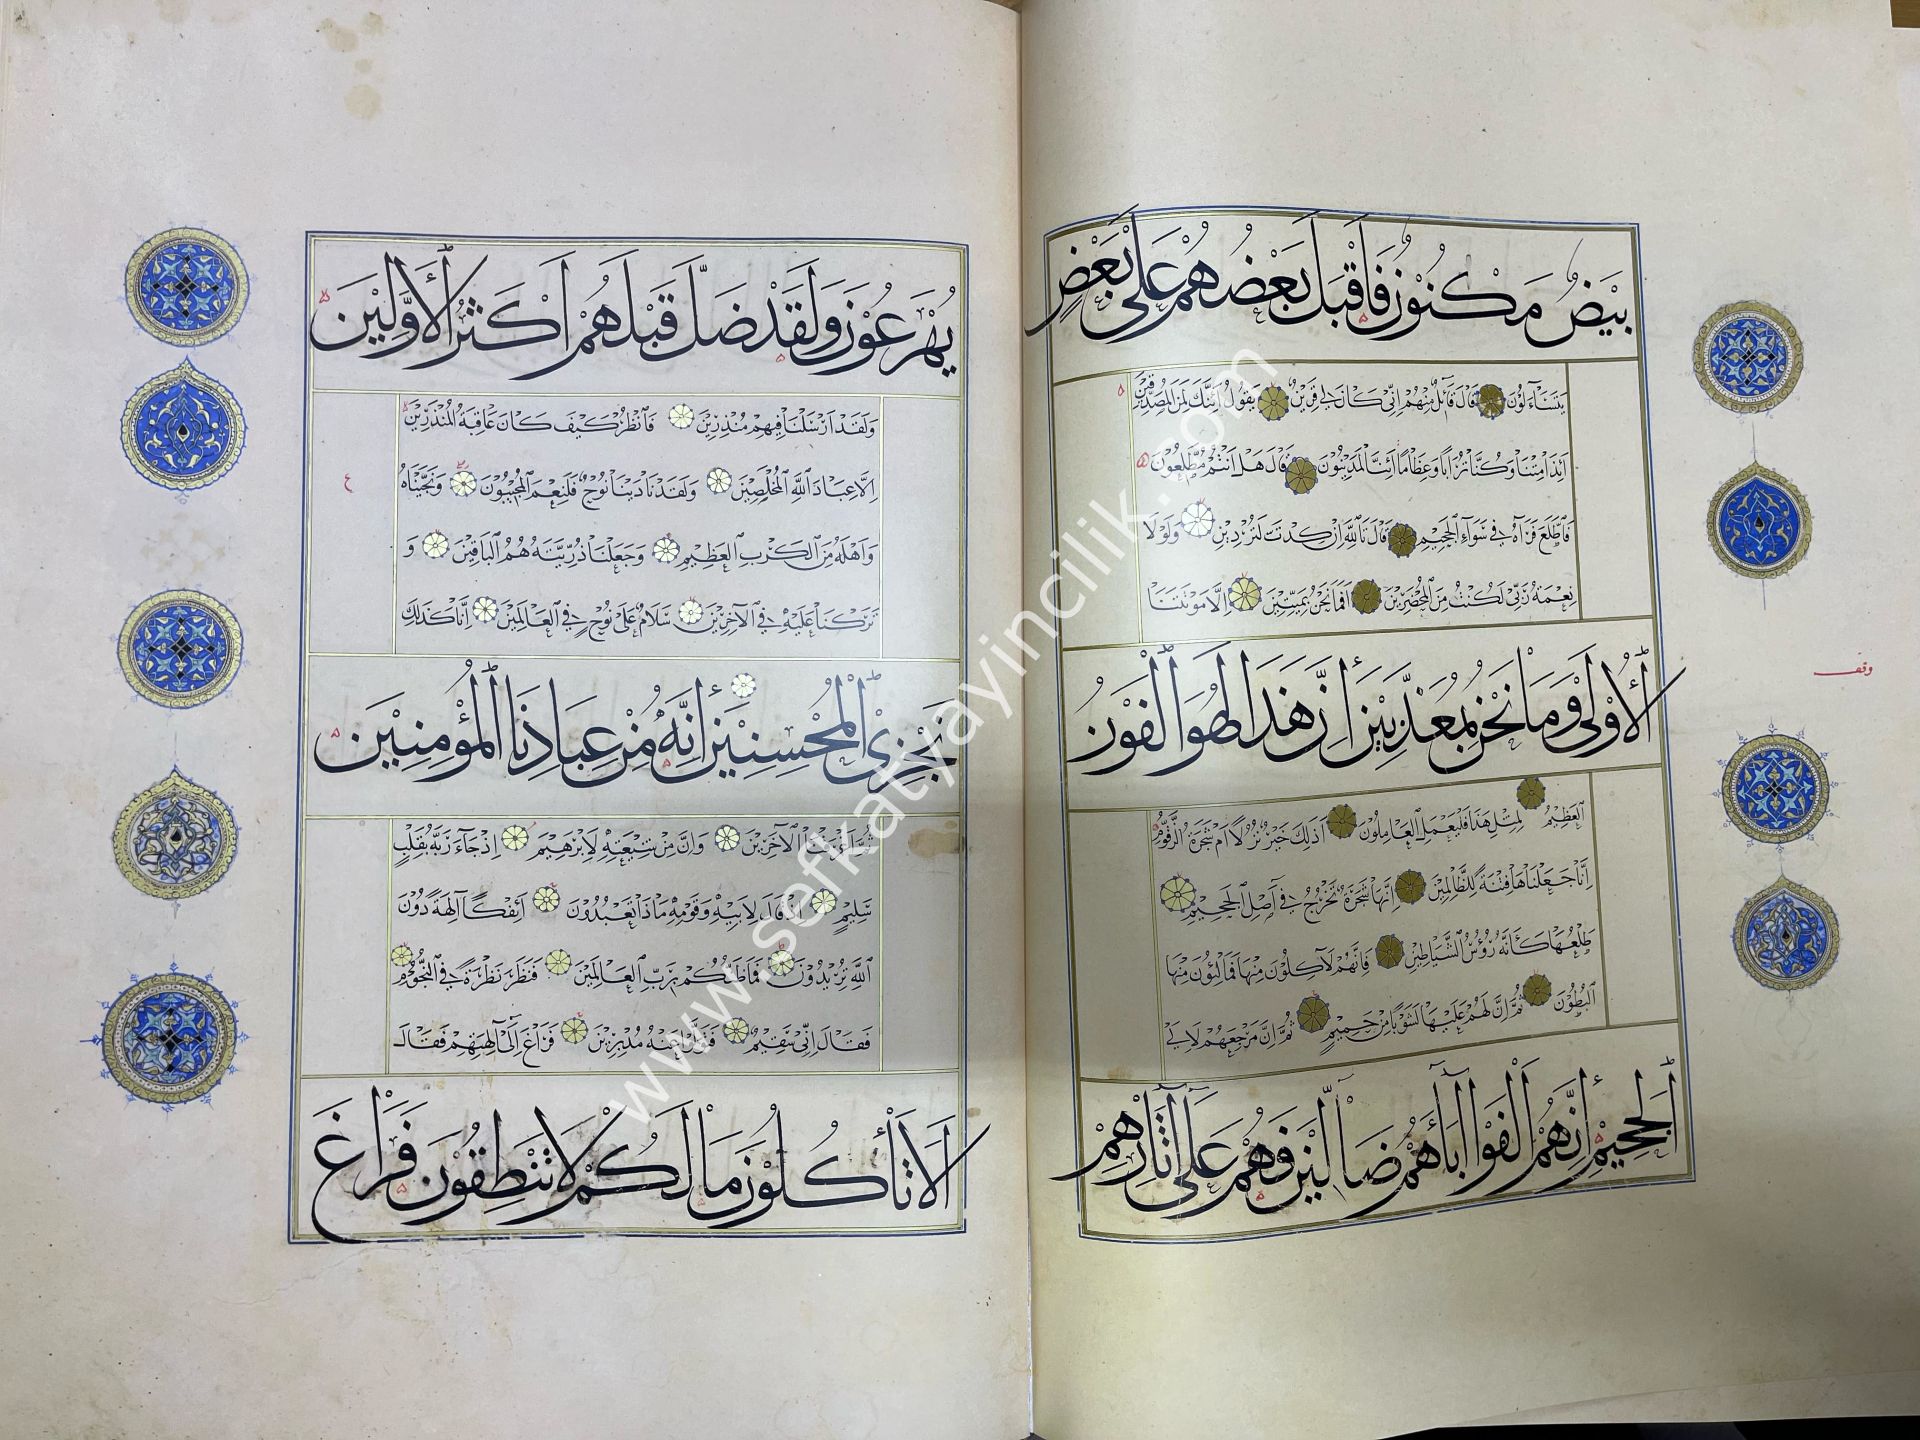 بَيْضٌ مَكْنُونٌ فَأَقْبَلَ بَعْضُهُمْ عَلَى بَعْضٍ
يَتَسَآءَلُونَ قَالَ قَآئِلٌ مِنْهُمْ إِنِّى كَانَ لِى قَرِينٌ يَقُولُ أَئِنَّكَ لَمِنَ الْمُصَدِّقِينَ
أَئِذَا مِتْنَا وَكُنَّا تُرَابًا وَعِظَامًا أَئِنَّا لَمَدِينُونَ قَالَ هَلْ أَنْتُمْ مُطَّلِعُونَ
فَاطَّلَعَ فَرَآهُ فِى سَوَآءِ الْجَحِيمِ قَالَ تَاللَّهِ إِنْ كِدْتَ لَتُرْدِينِ وَلَوْلَا
نِعْمَةُ رَبِّى لَكُنْتُ مِنَ الْمُحْضَرِينَ أَفَمَا نَحْنُ بِمَيِّتِينَ إِلَّا مَوْتَتَنَا
الْأُولَى وَمَا نَحْنُ بِمُعَذَّبِينَ إِنَّ هَذَا لَهُوَ الْفَوْزُ
وقف
الْعَظِيمُ لِمِثْلِ هَذَا فَلْيَعْمَلِ الْعَامِلُونَ أَذَلِكَ خَيْرٌ نُزُلًا أَمْ شَجَرَةُ الزَّقُّومِ
إِنَّا جَعَلْنَاهَا فِتْنَةً لِلظَّالِمِينَ إِنَّهَا شَجَرَةٌ تَخْرُجُ فِى أَصْلِ الْجَحِيمِ
طَلْعُهَا كَأَنَّهُ رُؤُسُ الشَّيَاطِينِ فَإِنَّهُمْ لَآكِلُونَ مِنْهَا فَمَالِئُونَ مِنْهَا
الْبُطُونَ ثُمَّ إِنَّ لَهُمْ عَلَيْهَا لَشَوْبًا مِنْ حَمِيمٍ ثُمَّ إِنَّ مَرْجِعَهُمْ لَإِلَى
الْجَحِيمِ إِنَّهُمْ أَلْفَوْا آبَآءَهُمْ ضَآلِّينَ فَهُمْ عَلَى آثَارِهِمْ
يُهْرَعُونَ وَلَقَدْ ضَلَّ قَبْلَهُمْ أَكْثَرُ الْأَوَّلِينَ
وَلَقَدْ أَرْسَلْنَا فِيهِمْ مُنْذِرِينَ فَانْظُرْ كَيْفَ كَانَ عَاقِبَةُ الْمُنْذَرِينَ
إِلَّا عِبَادَ اللَّهِ الْمُخْلَصِينَ وَلَقَدْ نَادَيْنَا نُوحٌ فَلَنِعْمَ الْمُجِيبُونَ وَنَجَّيْنَاهُ
وَأَهْلَهُ مِنَ الْكَرْبِ الْعَظِيمِ وَجَعَلْنَا ذُرِّيَّتَهُ هُمُ الْبَاقِينَ وَ
تَرَكْنَا عَلَيْهِ فِى الْآخِرِينَ سَلَامٌ عَلَى نُوحٍ فِى الْعَالَمِينَ إِنَّا كَذَلِكَ
نَجْزِى الْمُحْسِنِينَ إِنَّهُ مِنْ عِبَادِنَا الْمُؤْمِنِينَ
ثُمَّ أَغْرَقْنَا الْآخَرِينَ وَإِنَّ مِنْ شِيعَتِهِ لَإِبْرَهِيمَ إِذْ جَآءَ رَبَّهُ بِقَلْبٍ
سَلِيمٍ إِذْ قَالَ لِأَبِيهِ وَقَوْمِهِ مَاذَا تَعْبُدُونَ أَئِفْكًا آلِهَةً دُونَ
اللَّهِ تُرِيدُونَ فَمَا ظَنُّكُمْ بِرَبِّ الْعَالَمِينَ فَنَظَرَ نَظْرَةً فِى النُّجُومِ
فَقَالَ إِنِّى سَقِيمٌ فَتَوَلَّوْا عَنْهُ مُدْبِرِينَ فَرَاغَ إِلَى آلِهَتِهِمْ فَقَالَ
أَلَا تَأْكُلُونَ مَا لَكُمْ لَا تَنْطِقُونَ فَرَاغَ
www.sefkatyayincilik.com